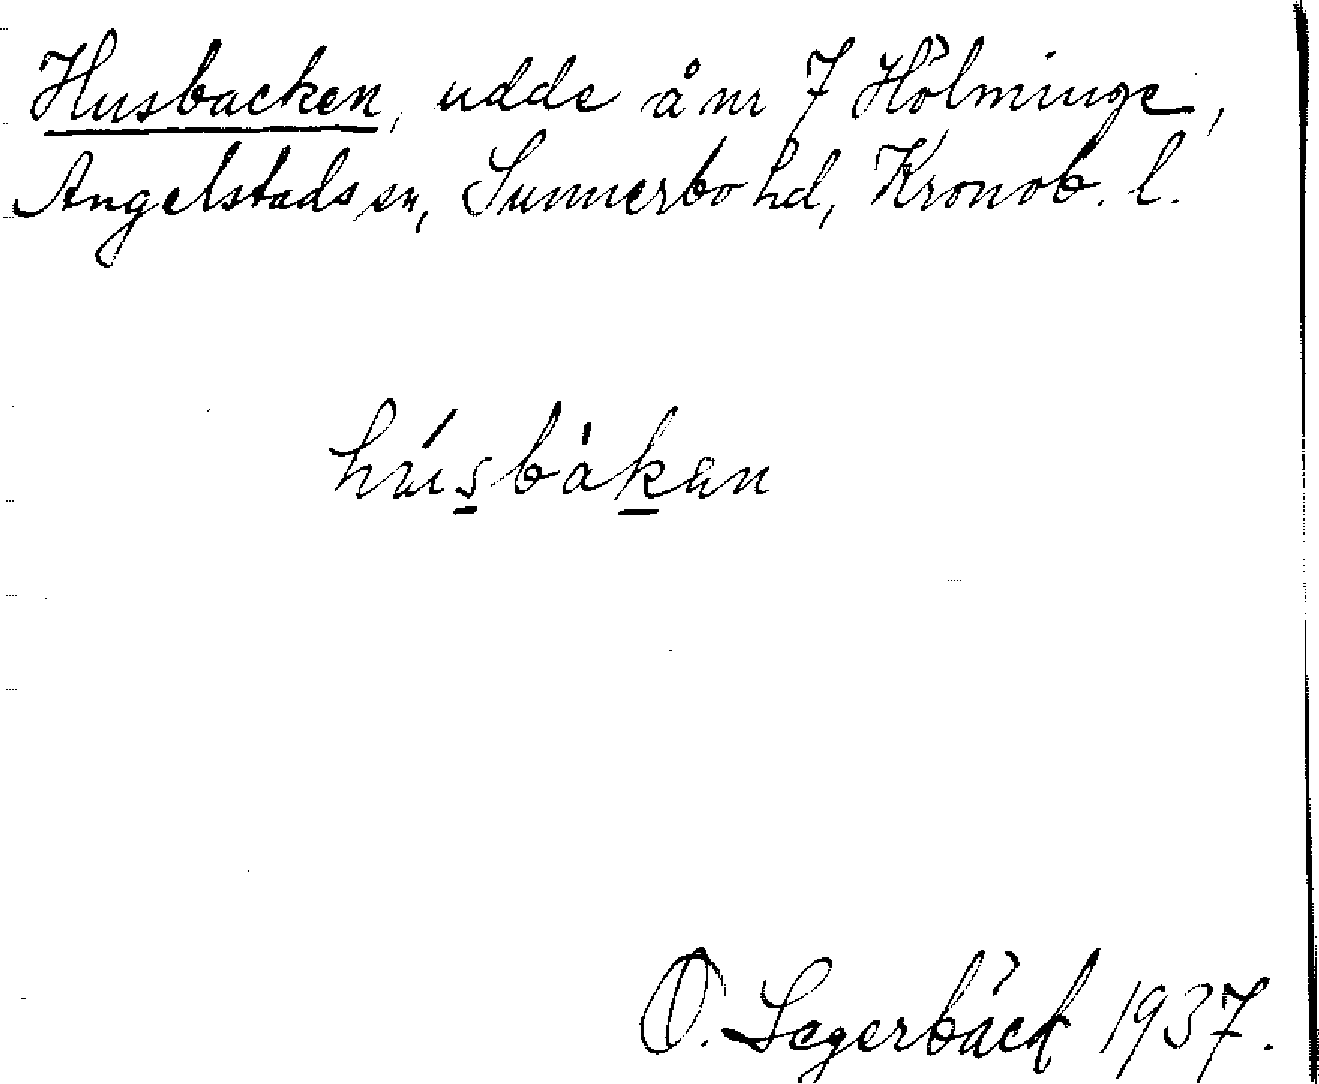 Husbacken, udde å nr 7 Hölminge,
Angelstads sn, Sunnerbo hd, Kronob. l.
húsbàkan
O. Segerbäck 1937.